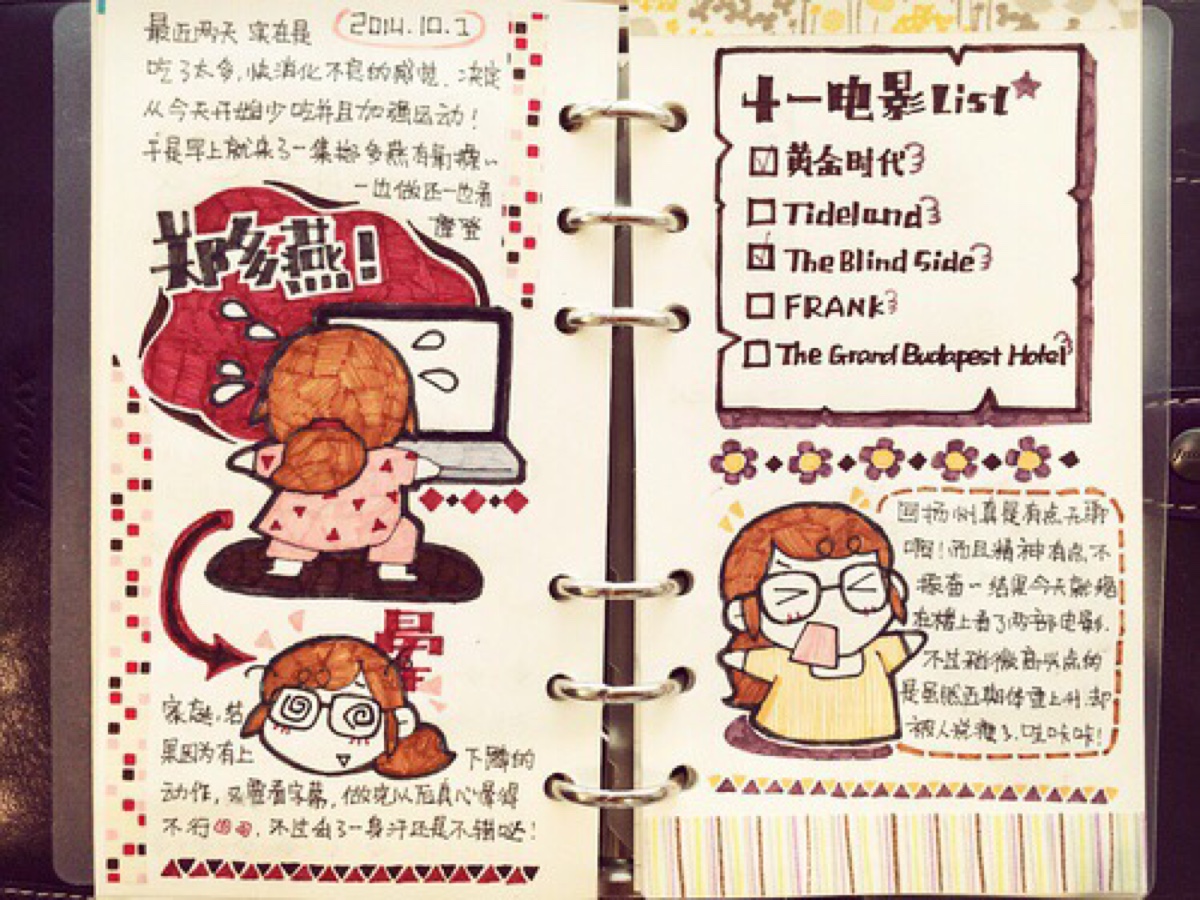 最近两天 实在是
2014.10.1
吃了太多,快消化不良的感觉.决定
从今天开始少吃并且加强运动!
于是早上就来了一集郑多燕有氧操~
一边做还一边看
郑多燕!
晕
家在,结
果因为有上
下腰的
动作,又要看字幕,做完以后真心晕得
不行.不过出了一身汗还是不错哒!
十一电影List
黄金时代
Tideland
The Blind Side
FRANK
The Grand Budapest Hotel
回扬州真是有点无聊
啊!而且精神有点不
振奋~结果今天就缩
在楼上看了两部电影.
不过稍微高兴点的
是虽然近期体重上升,却
被人说瘦了.哇咔咔!